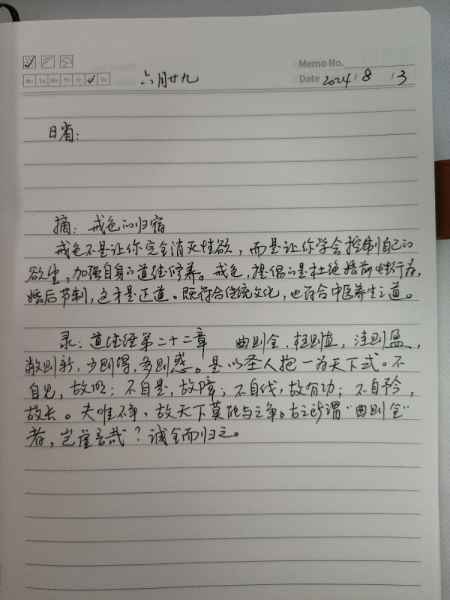 Memo No.
六月廿九 Date 2024 / 8 / 3
日省:
摘: 戒色的归宿
戒色不是让你完全消灭性欲, 而是让你学会控制自己的
欲望, 加强自身的道德修养。戒色, 提倡的是杜绝婚前性行为,
婚后节制, 这才是正道。既符合传统文化, 也符合中医养生之道。
录: 道德经第二十二章 曲则全, 枉则直, 洼则盈,
敝则新, 少则得, 多则惑。是以圣人抱一为天下式。不
自见, 故明; 不自是, 故彰; 不自伐, 故有功; 不自矜,
故长。夫唯不争, 故天下莫能与之争。古之所谓“曲则全”
者, 岂虚言哉? 诚全而归之。